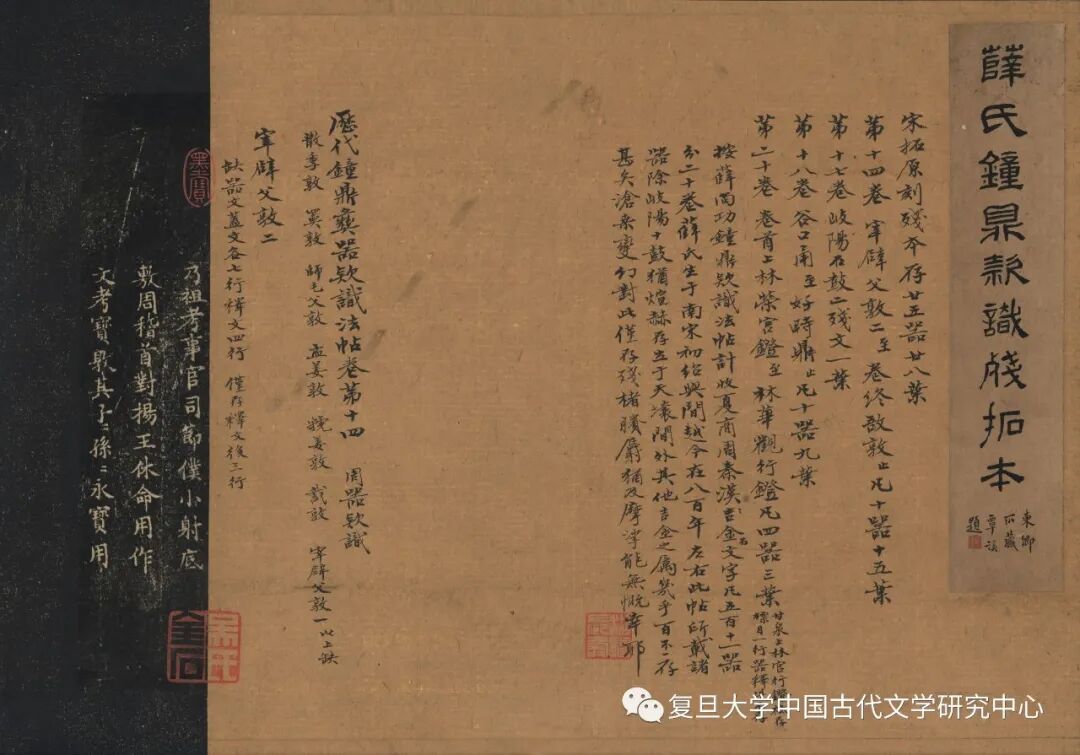 薛氏鐘鼎款識殘拓本
東卿
所藏
題
宋拓原刻殘本存廿五器廿八葉
第十四卷 宰辟父敦二至卷終敔敦止凡十器十五葉
第十七卷岐陽石鼓二殘文一葉
第十八卷谷口甬至好畤鼎止凡十器九葉
第二十卷 卷首上林榮宮鐙至林華觀行鐙凡四器三葉
甘泉上林宮行鐙
標目一行器釋
按薛尚功鐘鼎款識法帖計收夏商周秦漢吉金文字凡五百十一器
分二十卷薛氏生于南宋初紹興間越今在八百年左右此帖所載諸
器除岐陽十鼓猶煊赫存立于天壤間外其他吉金之屬幾乎百不一存
甚矣滄桑變幻對此僅存殘楮賸
猶及摩挲能無慨幸耶
歷代鐘鼎彝器款識法帖卷第十四 周器款識
散季敦 冀敦 師毛父敦 孟姜敦 㝃姜敦 㦰敦 宰辟父敦一 以上缺
宰辟父敦二
缺器文蓋文各七行釋文四行 僅存釋文後三行
墨寶
金石
乃祖考事官司節僕小射底
敷周稽首對揚王休命用作
文考寶敦其子二孫二永寶用
复旦大学中国古代文学研究中心